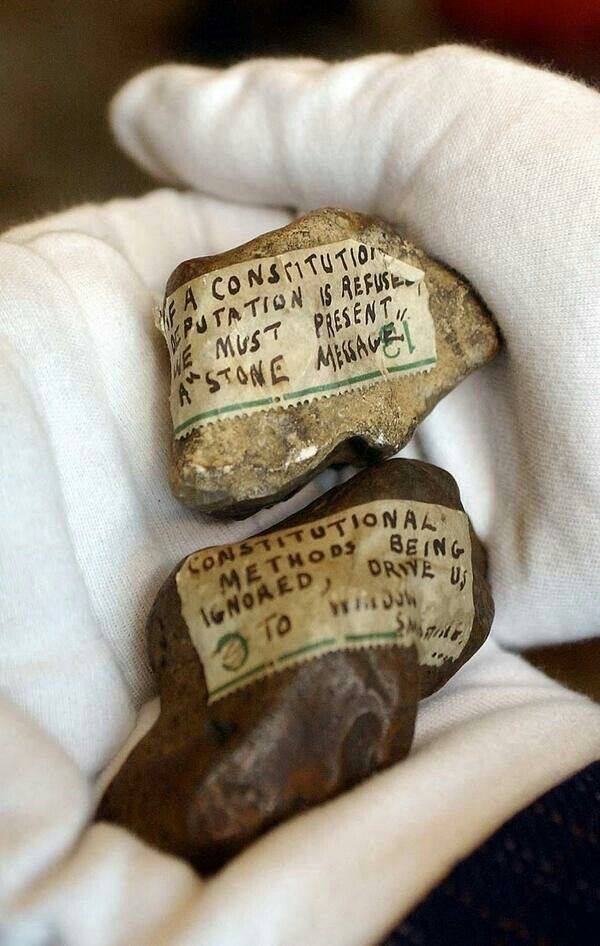 IF A CONSTITUTION
DEPUTATION IS REFUSED
WE MUST PRESENT
A "STONE MESSAGE"
CONSTITUTIONAL
METHODS BEING
IGNORED, DRIVE US
TO WINDOW
SMASHING....